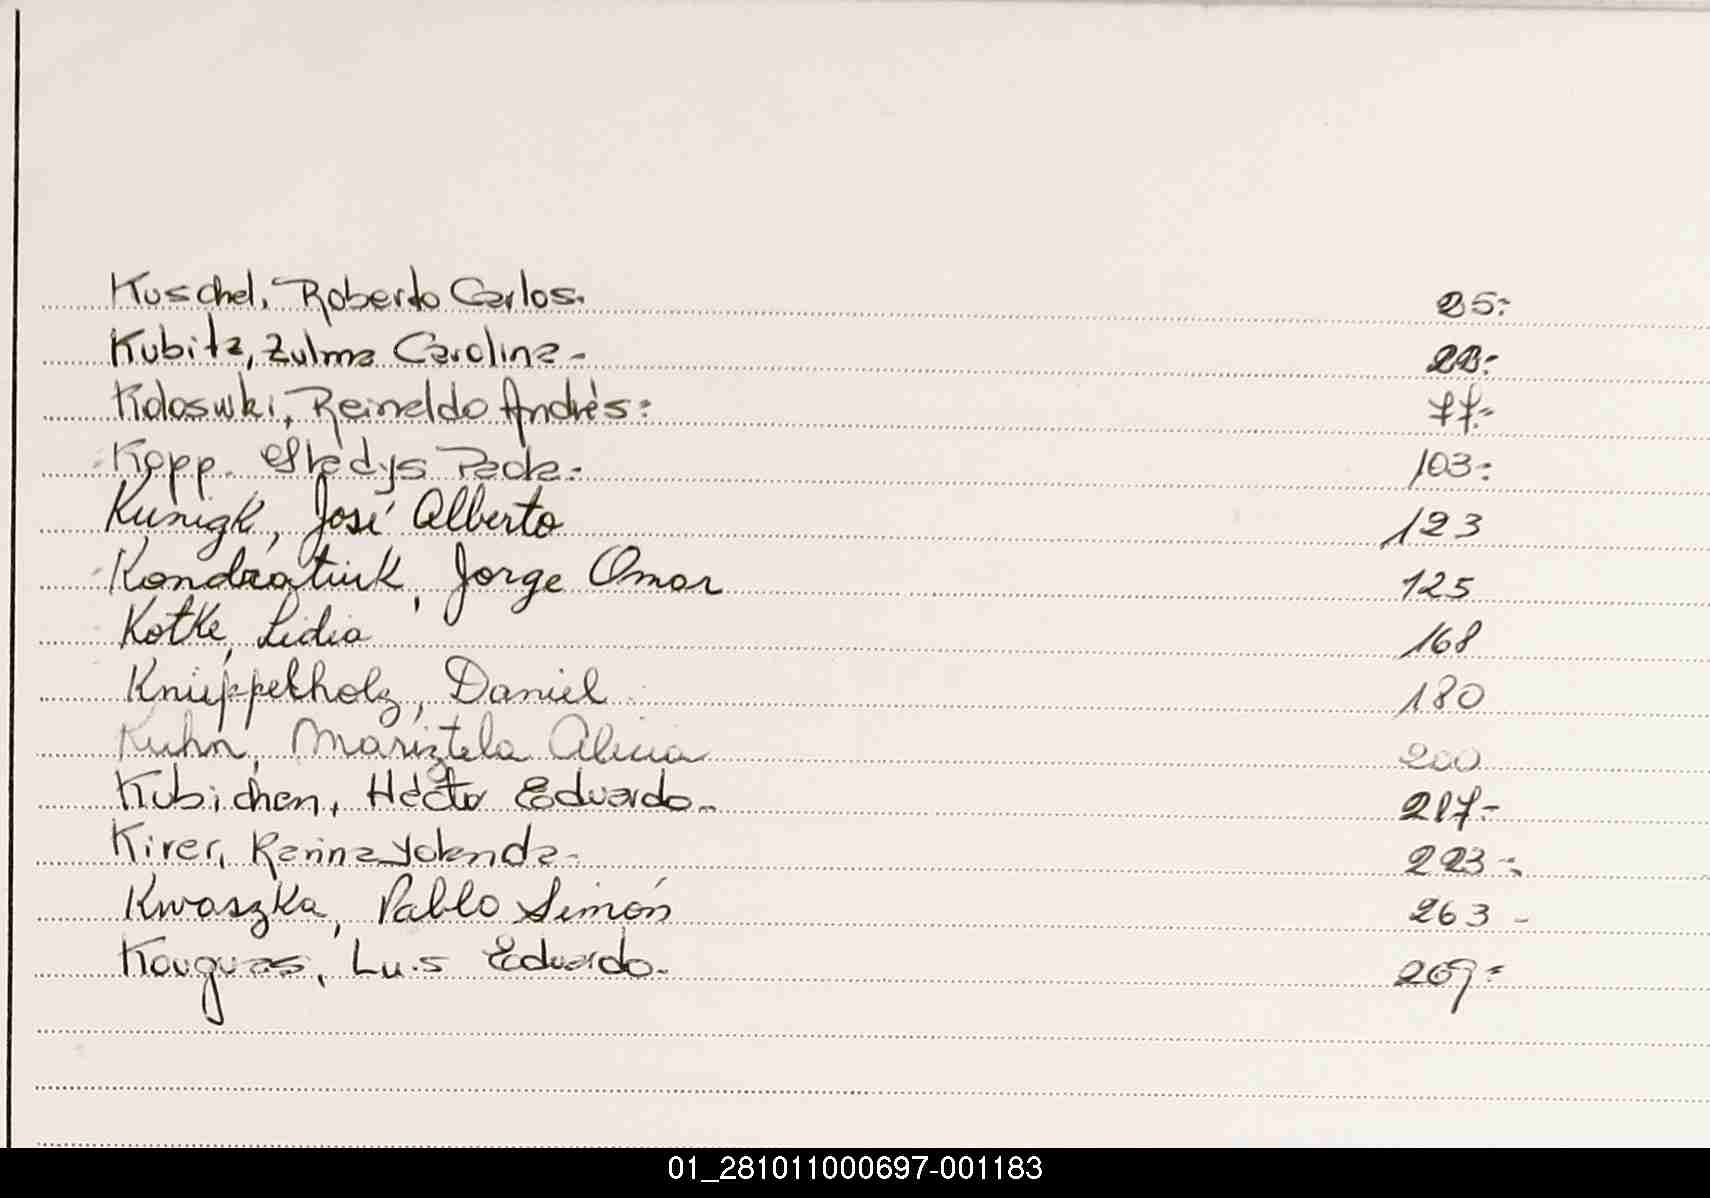 Kuschel, Roberto Carlos. 25.-
Kubitz, Zulma Carolina.- 28.-
Koloswki, Reinaldo Andrés.- 77.-
Kopp. Gladys 103.-
Kunigk, José Alberto 123
Kondratiuk, Jorge Omar 125
Kotke, Lidia 168
Knieppelholz, Daniel 180
Kuhn, Maristela Alicia 200
Kubichen, Héctor Eduardo.- 217.-
Kirer, Karina Yolanda.- 223.-
Kwaszka, Pablo Simón 263 -
Luis Eduardo.- 269.-
01_281011000697-001183